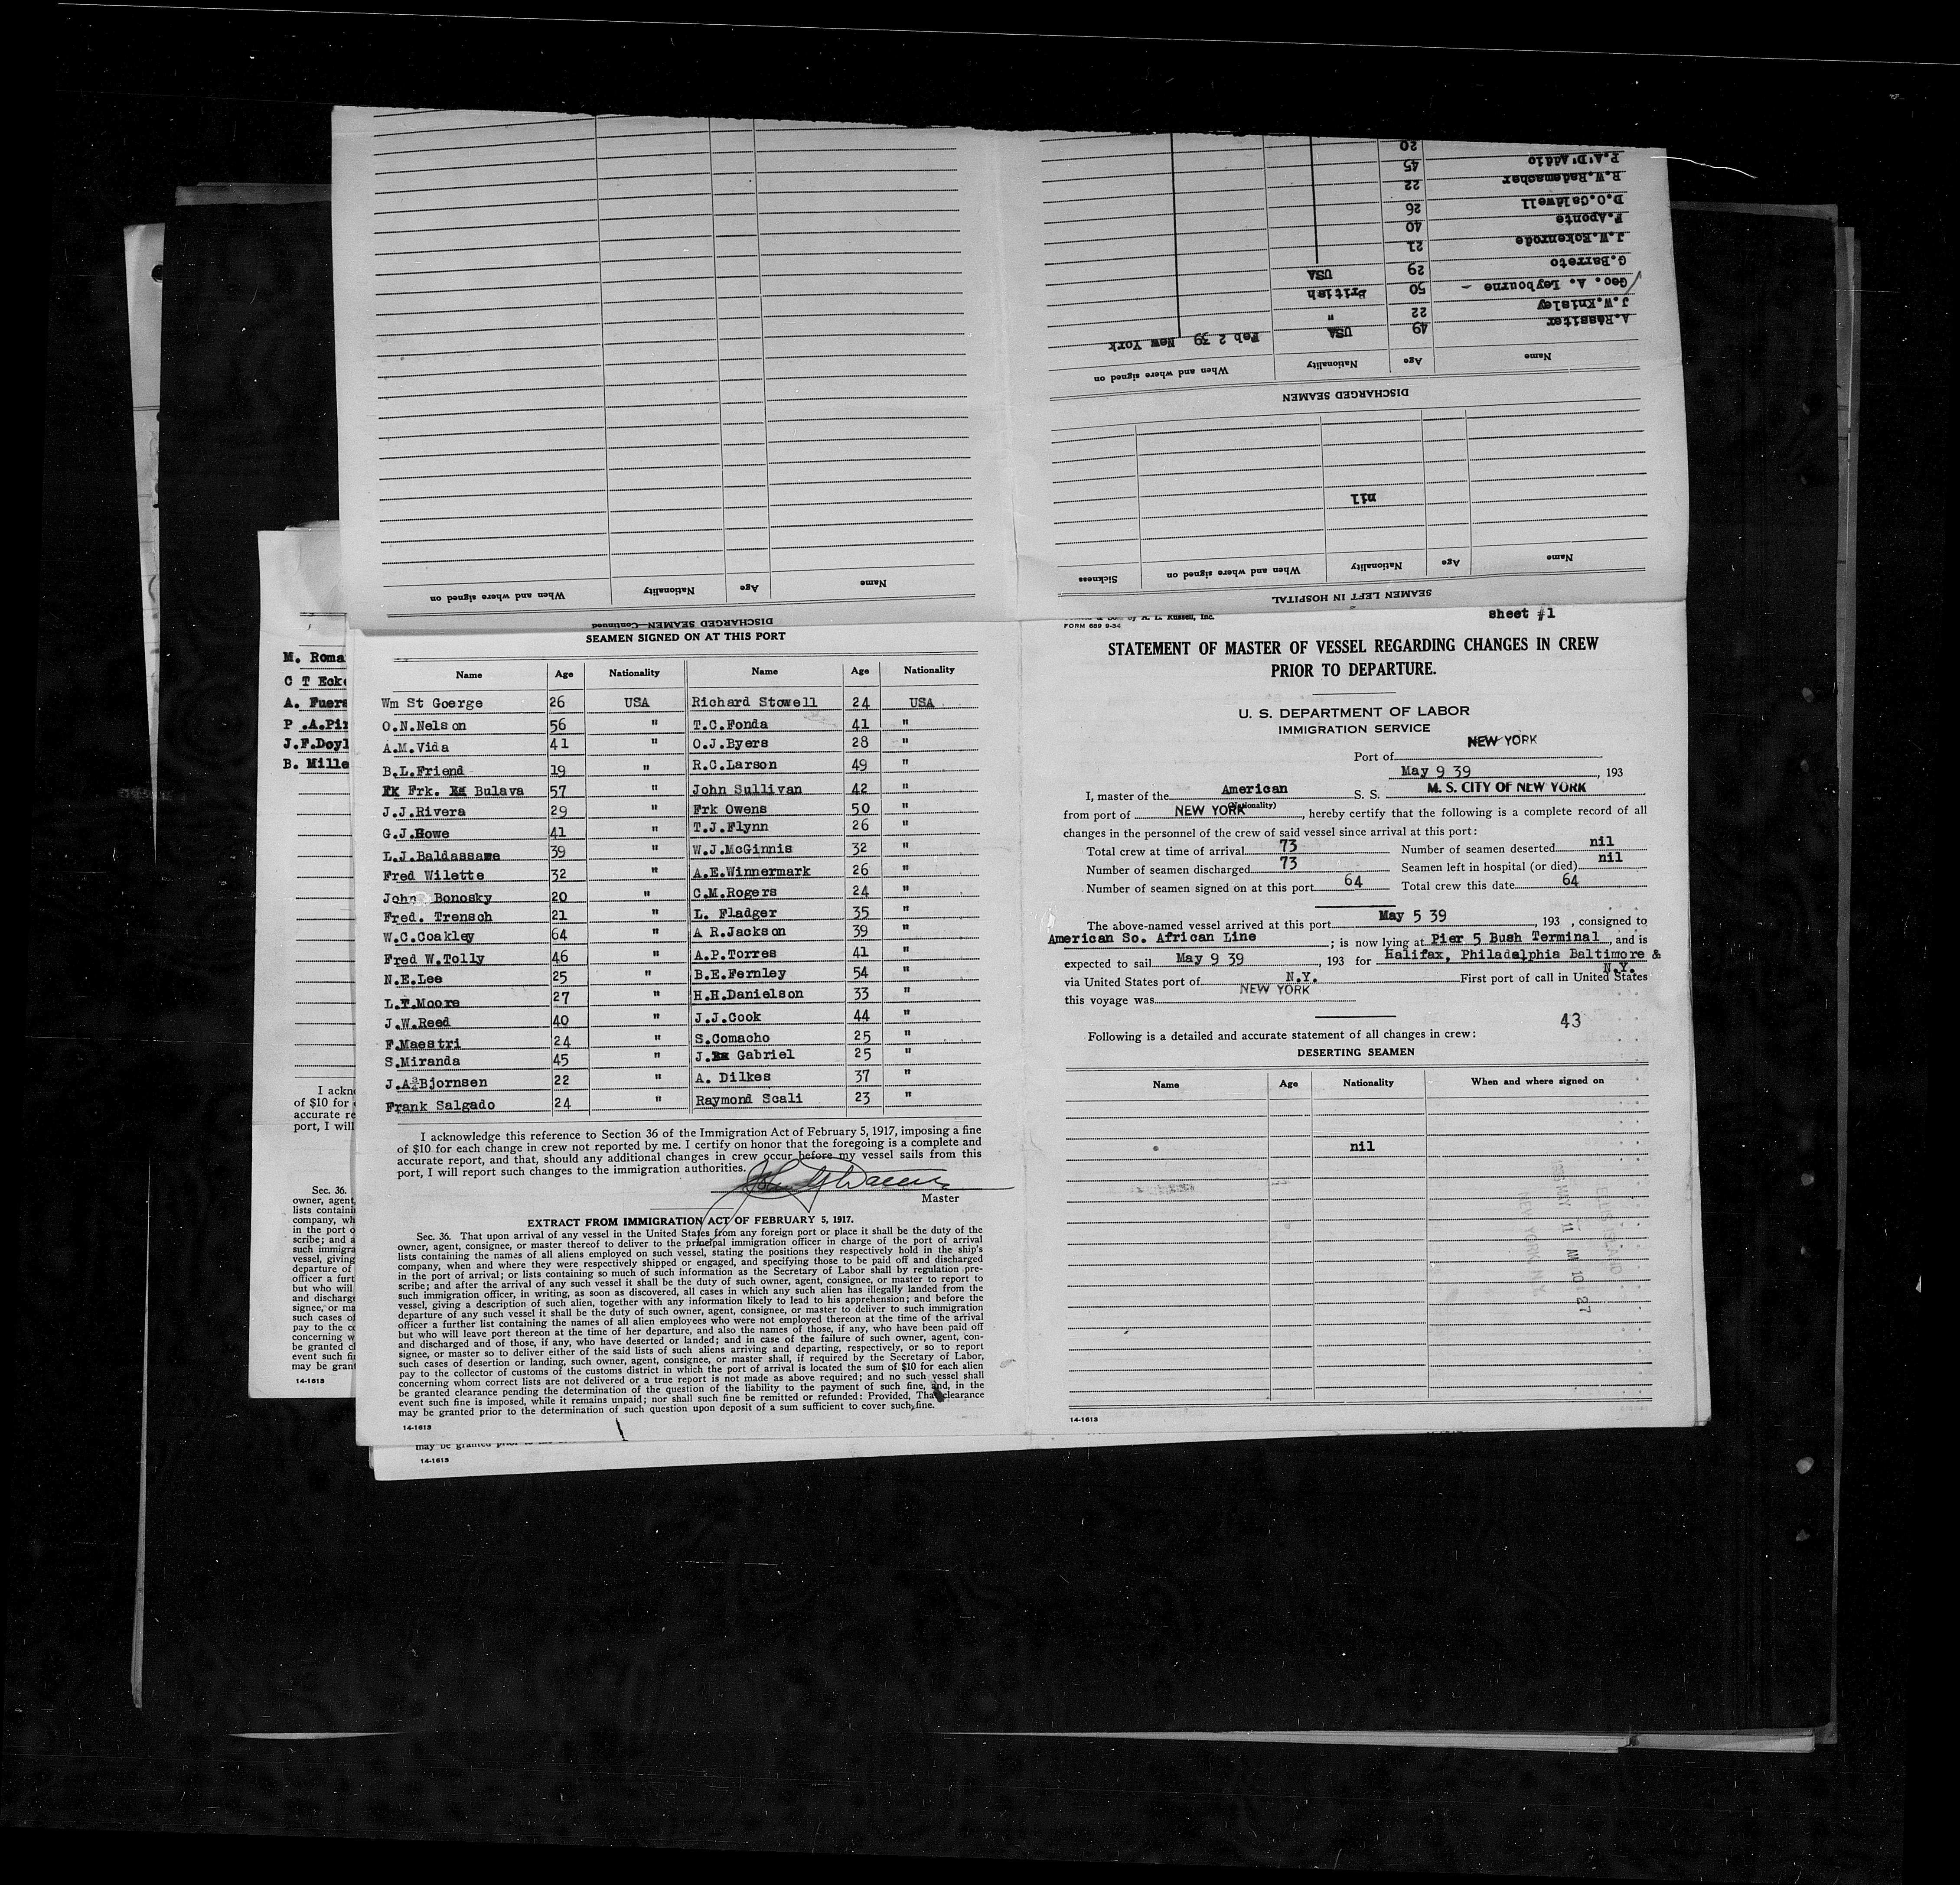 P.A.D'Addio 45
R.W.Rademacher 22
D.O.Caldwell 26
F.Aponte 40
J.W.Eckenrode 21
G.Barreto 29 USA
Geo. A. Leybourne - 50 British
J.W.Knisley 22 "
A.Rossiter 49 USA Feb 2 39 New York
Name Age Nationality When and where signed on
DISCHARGED SEAMEN
nil
Name Age Nationality When and where signed on Sickness
SEAMEN LEFT IN HOSPITAL
Name Age Nationality When and where signed on
DISCHARGED SEAMEN—Continued
SEAMEN SIGNED ON AT THIS PORT
Name Age Nationality Name Age Nationality
Wm St Goerge 26 USA Richard Stowell 24 USA
O.N.Nelson 56 " T.C.Fonda 41 "
A.M.Vida 41 " O.J.Byers 28 "
B.L.Friend 19 " R.C.Larson 49 "
Frk. Bulava 57 " John Sullivan 42 "
J.J.Rivera 29 " Frk Owens 50 "
G.J.Howe 41 " T.J.Flynn 26 "
L.J.Baldassame 39 " W.J.McGinnis 32 "
Fred Wilette 32 " A.E.Winnermark 26 "
John Bonosky 20 " C.M.Rogers 24 "
Fred. Trensch 21 " L. Fladger 35 "
W.C.Coakley 64 " A R.Jackson 39 "
Fred W.Tolly 46 " A.P.Torres 41 "
N.E.Lee 25 " B.E.Fernley 54 "
L.T.Moore 27 " H.H.Danielson 33 "
J.W.Reed 40 " J.J.Cook 44 "
F.Maestri 24 " S.Comacho 25 "
S.Miranda 45 " J. Gabriel 25 "
J.A.Bjornsen 22 " A. Dilkes 37 "
Frank Salgado 24 " Raymond Scali 23 "
I acknowledge this reference to Section 36 of the Immigration Act of February 5, 1917, imposing a fine
of $10 for each change in crew not reported by me. I certify on honor that the foregoing is a complete and
accurate report, and that, should any additional changes in crew occur before my vessel sails from this
port, I will report such changes to the immigration authorities.
Master
EXTRACT FROM IMMIGRATION ACT OF FEBRUARY 5, 1917.
Sec. 36. That upon arrival of any vessel in the United States from any foreign port or place it shall be the duty of the
owner, agent, consignee, or master thereof to deliver to the principal immigration officer in charge of the port of arrival
lists containing the names of all aliens employed on such vessel, stating the positions they respectively hold in the ship's
company, when and where they were respectively shipped or engaged, and specifying those to be paid off and discharged
in the port of arrival; or lists containing so much of such information as the Secretary of Labor shall by regulation pre-
scribe; and after the arrival of any such vessel it shall be the duty of such owner, agent, consignee, or master to report to
such immigration officer, in writing, as soon as discovered, all cases in which any such alien has illegally landed from the
vessel, giving a description of such alien, together with any information likely to lead to his apprehension; and before the
departure of any such vessel it shall be the duty of such owner, agent, consignee, or master to deliver to such immigration
officer a further list containing the names of all alien employees who were not employed thereon at the time of the arrival
but who will leave port thereon at the time of her departure, and also the names of those, if any, who have been paid off
and discharged and of those, if any, who have deserted or landed; and in case of the failure of such owner, agent, con-
signee, or master so to deliver either of the said lists of such aliens arriving and departing, respectively, or so to report
such cases of desertion or landing, such owner, agent, consignee, or master shall, if required by the Secretary of Labor,
pay to the collector of customs of the customs district in which the port of arrival is located the sum of $10 for each alien
concerning whom correct lists are not delivered or a true report is not made as above required; and no such vessel shall
be granted clearance pending the determination of the question of the liability to the payment of such fine, and, in the
event such fine is imposed, while it remains unpaid; nor shall such fine be remitted or refunded: Provided, That clearance
may be granted prior to the determination of such question upon deposit of a sum sufficient to cover such fine.
14-1613
14-1613
sheet #1
FORM 689 9-34
STATEMENT OF MASTER OF VESSEL REGARDING CHANGES IN CREW
PRIOR TO DEPARTURE.
U. S. DEPARTMENT OF LABOR
IMMIGRATION SERVICE
Port of NEW YORK
May 9 39, 193
I, master of the American S. S. M. S. CITY OF NEW YORK
(Nationality)
from port of NEW YORK, hereby certify that the following is a complete record of all
changes in the personnel of the crew of said vessel since arrival at this port:
Total crew at time of arrival 73 Number of seamen deserted nil
Number of seamen discharged 73 Seamen left in hospital (or died) nil
Number of seamen signed on at this port 64 Total crew this date 64
The above-named vessel arrived at this port May 5 39, 193 , consigned to
American So. African Line; is now lying at Pier 5 Bush Terminal, and is
expected to sail May 9 39, 193 for Halifax, Philadelphia Baltimore &
N.Y.
via United States port of N.Y. First port of call in United States
this voyage was NEW YORK
43
Following is a detailed and accurate statement of all changes in crew:
DESERTING SEAMEN
Name Age Nationality When and where signed on
nil
14-1613
M. Roma
C T Ecke
A. Fuers
P .A.Pir
J.F.Doyl
B. Mille
I ackn
of $10 for
accurate re
port, I will
Sec. 36.
owner, agent,
lists containi
company, wh
in the port o
scribe; and a
such immigra
vessel, giving
departure of
officer a furt
but who will
and discharge
signee, or ma
such cases of
pay to the co
concerning w
be granted cl
event such fi
may be grant
14-1613